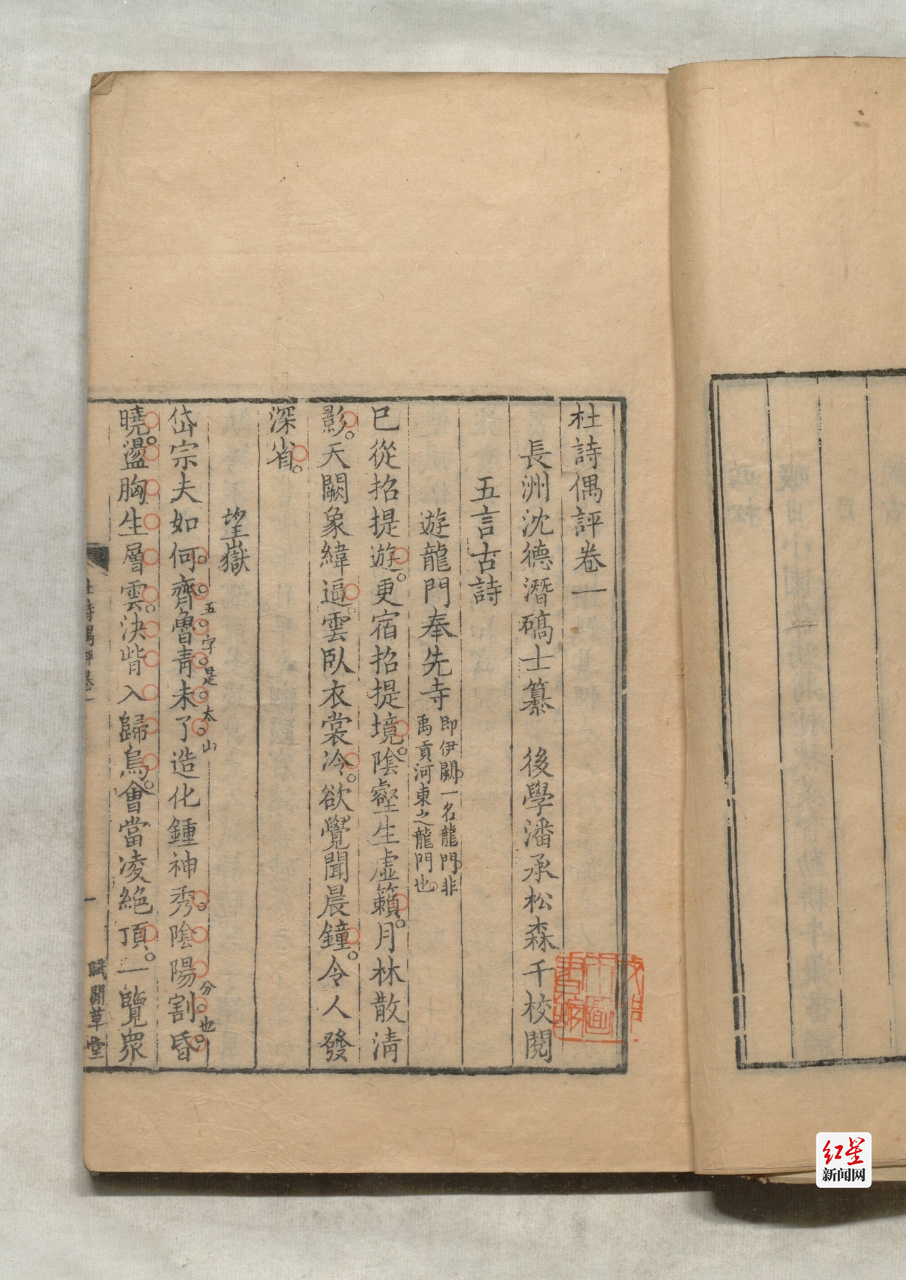 杜詩偶評卷一
長洲沈德潛碻士纂 後學潘承松森千校閱
五言古詩
遊龍門奉先寺 即伊闕一名龍門非禹貢河東之龍門也
已從招提遊更宿招提境陰壑生虛籟月林散清
影天闕象緯逼雲臥衣裳冷欲覺聞晨鐘令人發
深省
望嶽
岱宗夫如何齊魯青未了造化鍾神秀陰陽割昏
五字是太山
分也
曉盪胸生層雲決眥入歸鳥會當凌絕頂一覽眾
杜詩偶評卷一
一
賦閒草堂
红星新闻网